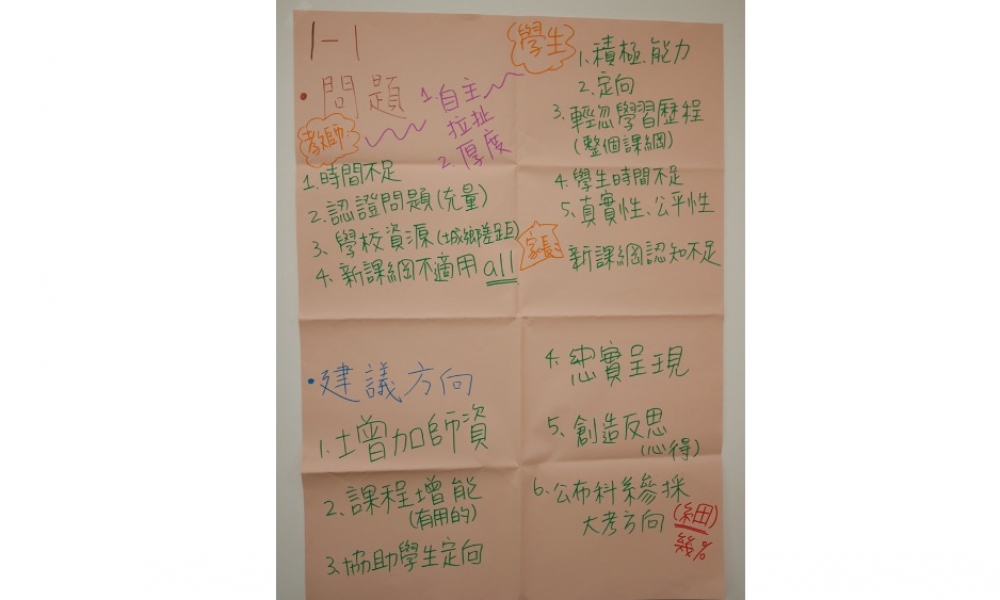 1-1
•問題
教師
1.自主
拉扯
2.厚度
1.時間不足
2.認證問題(充量)
3、學校資源(城鄉差距)
4、新課綱不適用all
學生
1.積極.能力
2.定向
3.輕忽學習歷程
(整個課綱)
4.學生時間不足
5、真實性、公平性
家長
新課綱認知不足
•建議方向
1.增加師資
2.課程增能
(有用的)
3.協助學生定向
4.忠實呈現
5、創造反思
(心得)
6.公布科系參採
大考方向(細)
幾%